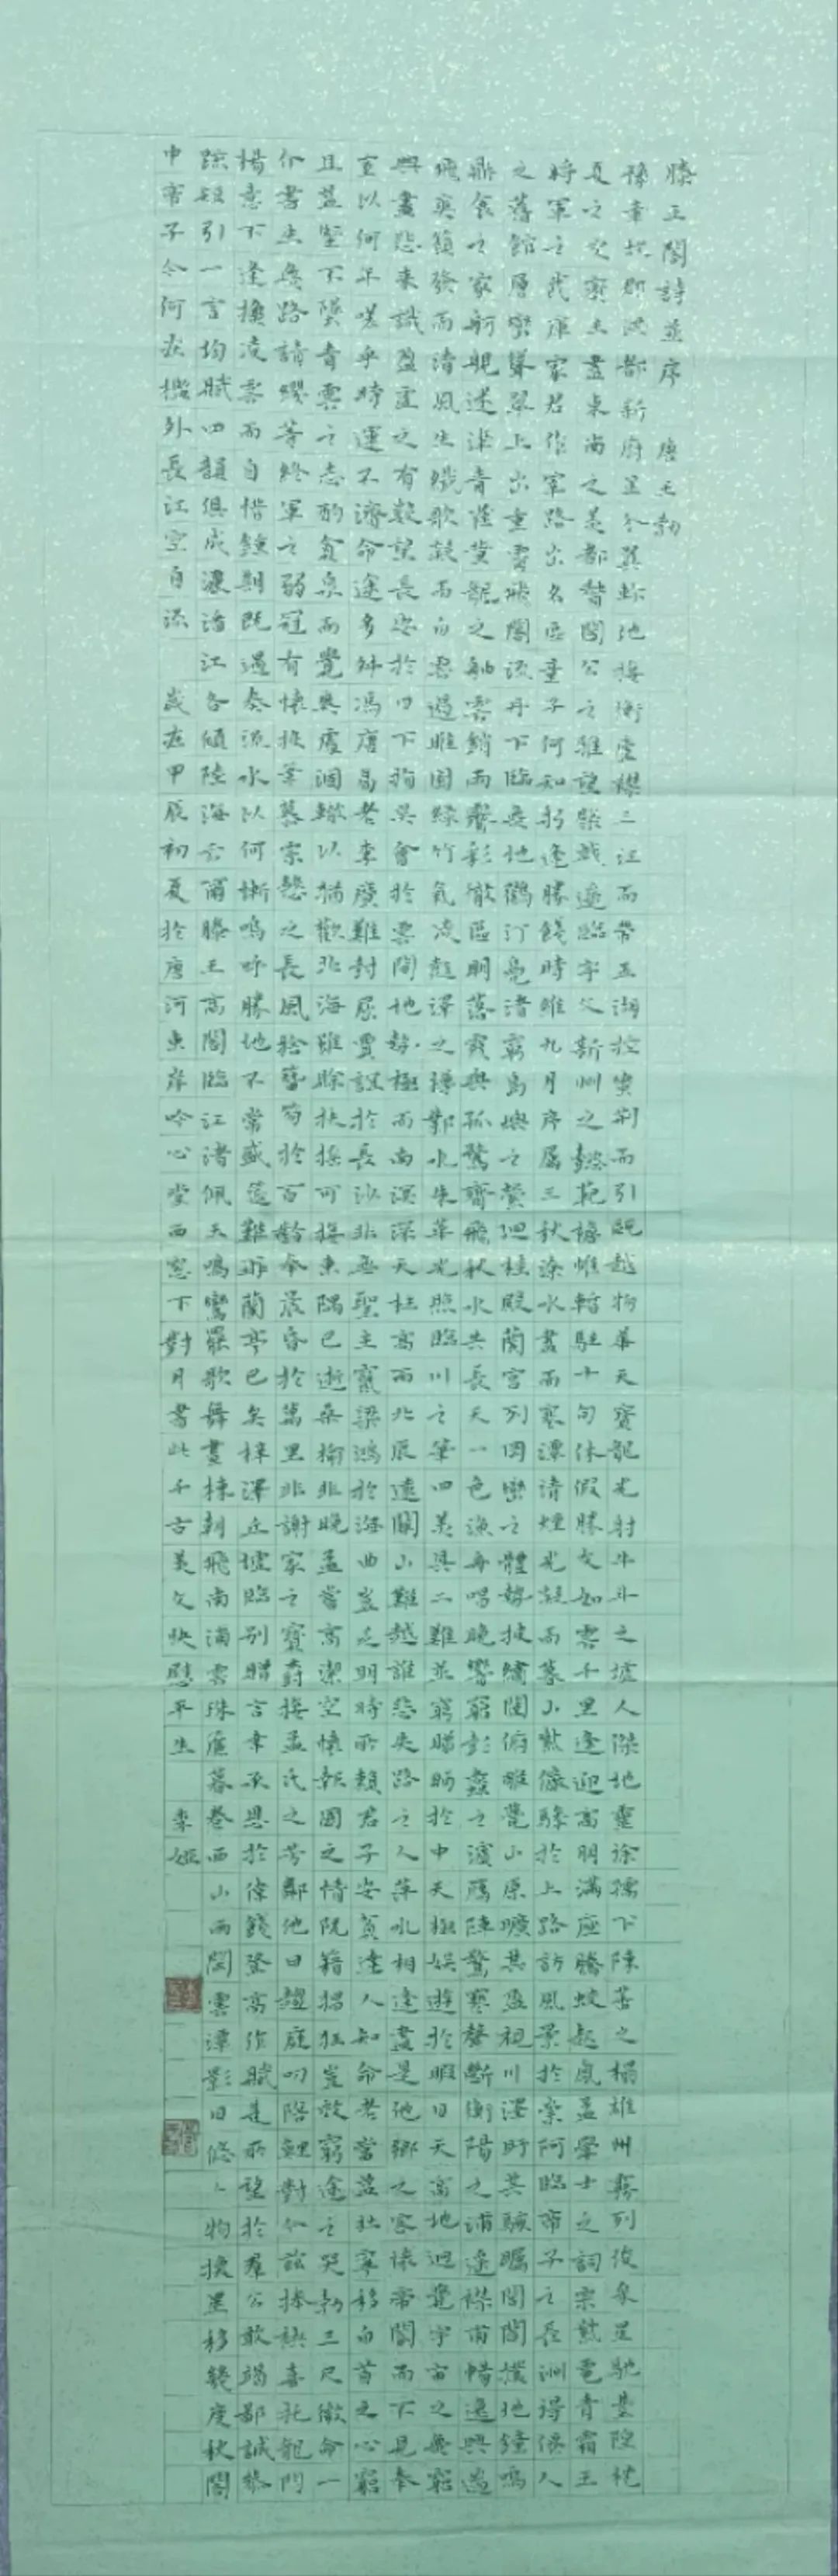 滕王閣詩並序 唐王勃
豫章故郡洪都新府星分翼軫地接衡廬襟三江而帶五湖控蠻荊而引甌越物華天寶龍光射牛斗之墟人傑地靈徐孺下陳蕃之榻雄州霧列俊采星馳臺隍枕
夏之交賓主盡東南之美都督閻公之雅望棨戟遙臨宇文新州之懿範襜帷暫駐十旬休假勝友如雲千里逢迎高明滿座騰蛟起鳳孟學士之詞宗紫電青霜王
將軍之武庫家君作宰路出名區童子何知躬逢勝餞時維九月序屬三秋潦水盡而寒潭清煙光凝而暮山紫儼驂於上路訪風景於崇阿臨帝子之長洲得僊人
之舊館層巒聳翠上出重霄飛閣流丹下臨無地鶴汀鳧渚窮島嶼之縈迴桂殿蘭宮列岡巒之體勢披繡闥俯雕甍山原曠其盈視川澤盱其駭矚閭閻撲地鐘鳴
鼎食之家舸艦迷津青雀黃龍之舳雲銷雨霽彩徹區明落霞與孤鶩齊飛秋水共長天一色漁舟唱晚響窮彭蠡之濱雁陣驚寒聲斷衡陽之浦遙襟甫暢逸興遄
飛爽籟發而清風生纖歌凝而白雲遏睢園綠竹氣凌彭澤之樽鄴水朱華光照臨川之筆四美具二難並窮睇眄於中天極娛遊於暇日天高地迥覺宇宙之無窮
興盡悲來識盈虛之有數望長安於日下指吳會於雲間地勢極而南溟深天柱高而北辰遠關山難越誰悲失路之人萍水相逢盡是他鄉之客懷帝閽而不見奉
宣以何年嗟乎時運不濟命途多舛馮唐易老李廣難封屈賈誼於長沙非無聖主竄梁鴻於海曲豈乏明時所賴君子安貧達人知命老當益壯寧移白首之心窮
且益堅不墜青雲之志酌貪泉而覺爽處涸轍以猶歡北海雖賒扶搖可接東隅已逝桑榆非晚孟嘗高潔空懷報國之情阮籍猖狂豈效窮途之哭勃三尺微命一
介書生無路請纓等終軍之弱冠有懷投筆慕宗慤之長風捨簪笏於百齡奉晨昏於萬里非謝家之寶樹接孟氏之芳鄰他日趨庭叨陪鯉對今茲捧袂喜託龍門
楊意不逢撫凌雲而自惜鍾期既遇奏流水以何慚嗚呼勝地不常盛筵難再蘭亭已矣梓澤丘墟臨別贈言幸承恩於偉餞登高作賦是所望於羣公敢竭鄙誠恭
疏短引一言均賦四韻俱成灑潘江各傾陸海云爾滕王高閣臨江渚佩玉鳴鸞罷歌舞畫棟朝飛南浦雲珠簾暮卷西山雨閒雲潭影日悠〻物換星移幾度秋閣
中帝子今何在檻外長江空自流 歲在甲辰初夏於唐河東岸吟心堂西窗下對月書此千古美文快慰平生 李姬